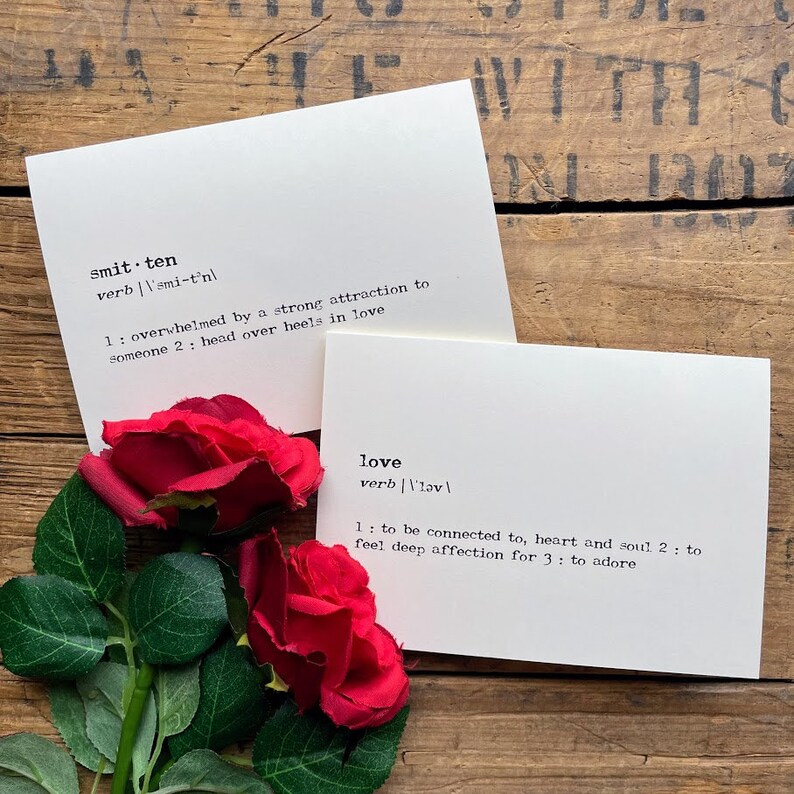 WITH
smit·ten
verb | \ˈsmi-tᵊn\
1 : overwhelmed by a strong attraction to
someone 2 : head over heels in love
love
verb | \ˈləv\
1 : to be connected to, heart and soul 2 : to
feel deep affection for 3 : to adore